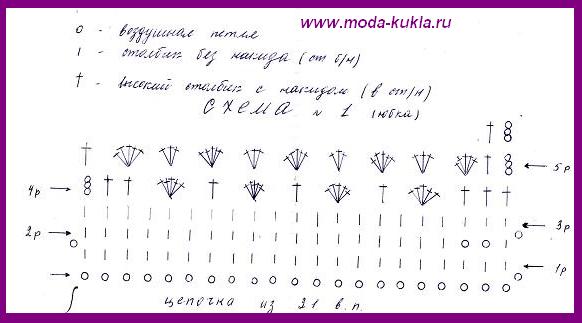 www.moda-kukla.ru
о - воздушная петля
I - столбик без накида (ст б/н)
† - высокий столбик с накидом (в ст/н)
СХЕМА N 1 (юбка)
5р
4р
2р
3р
1р
цепочка из 21 в.п.